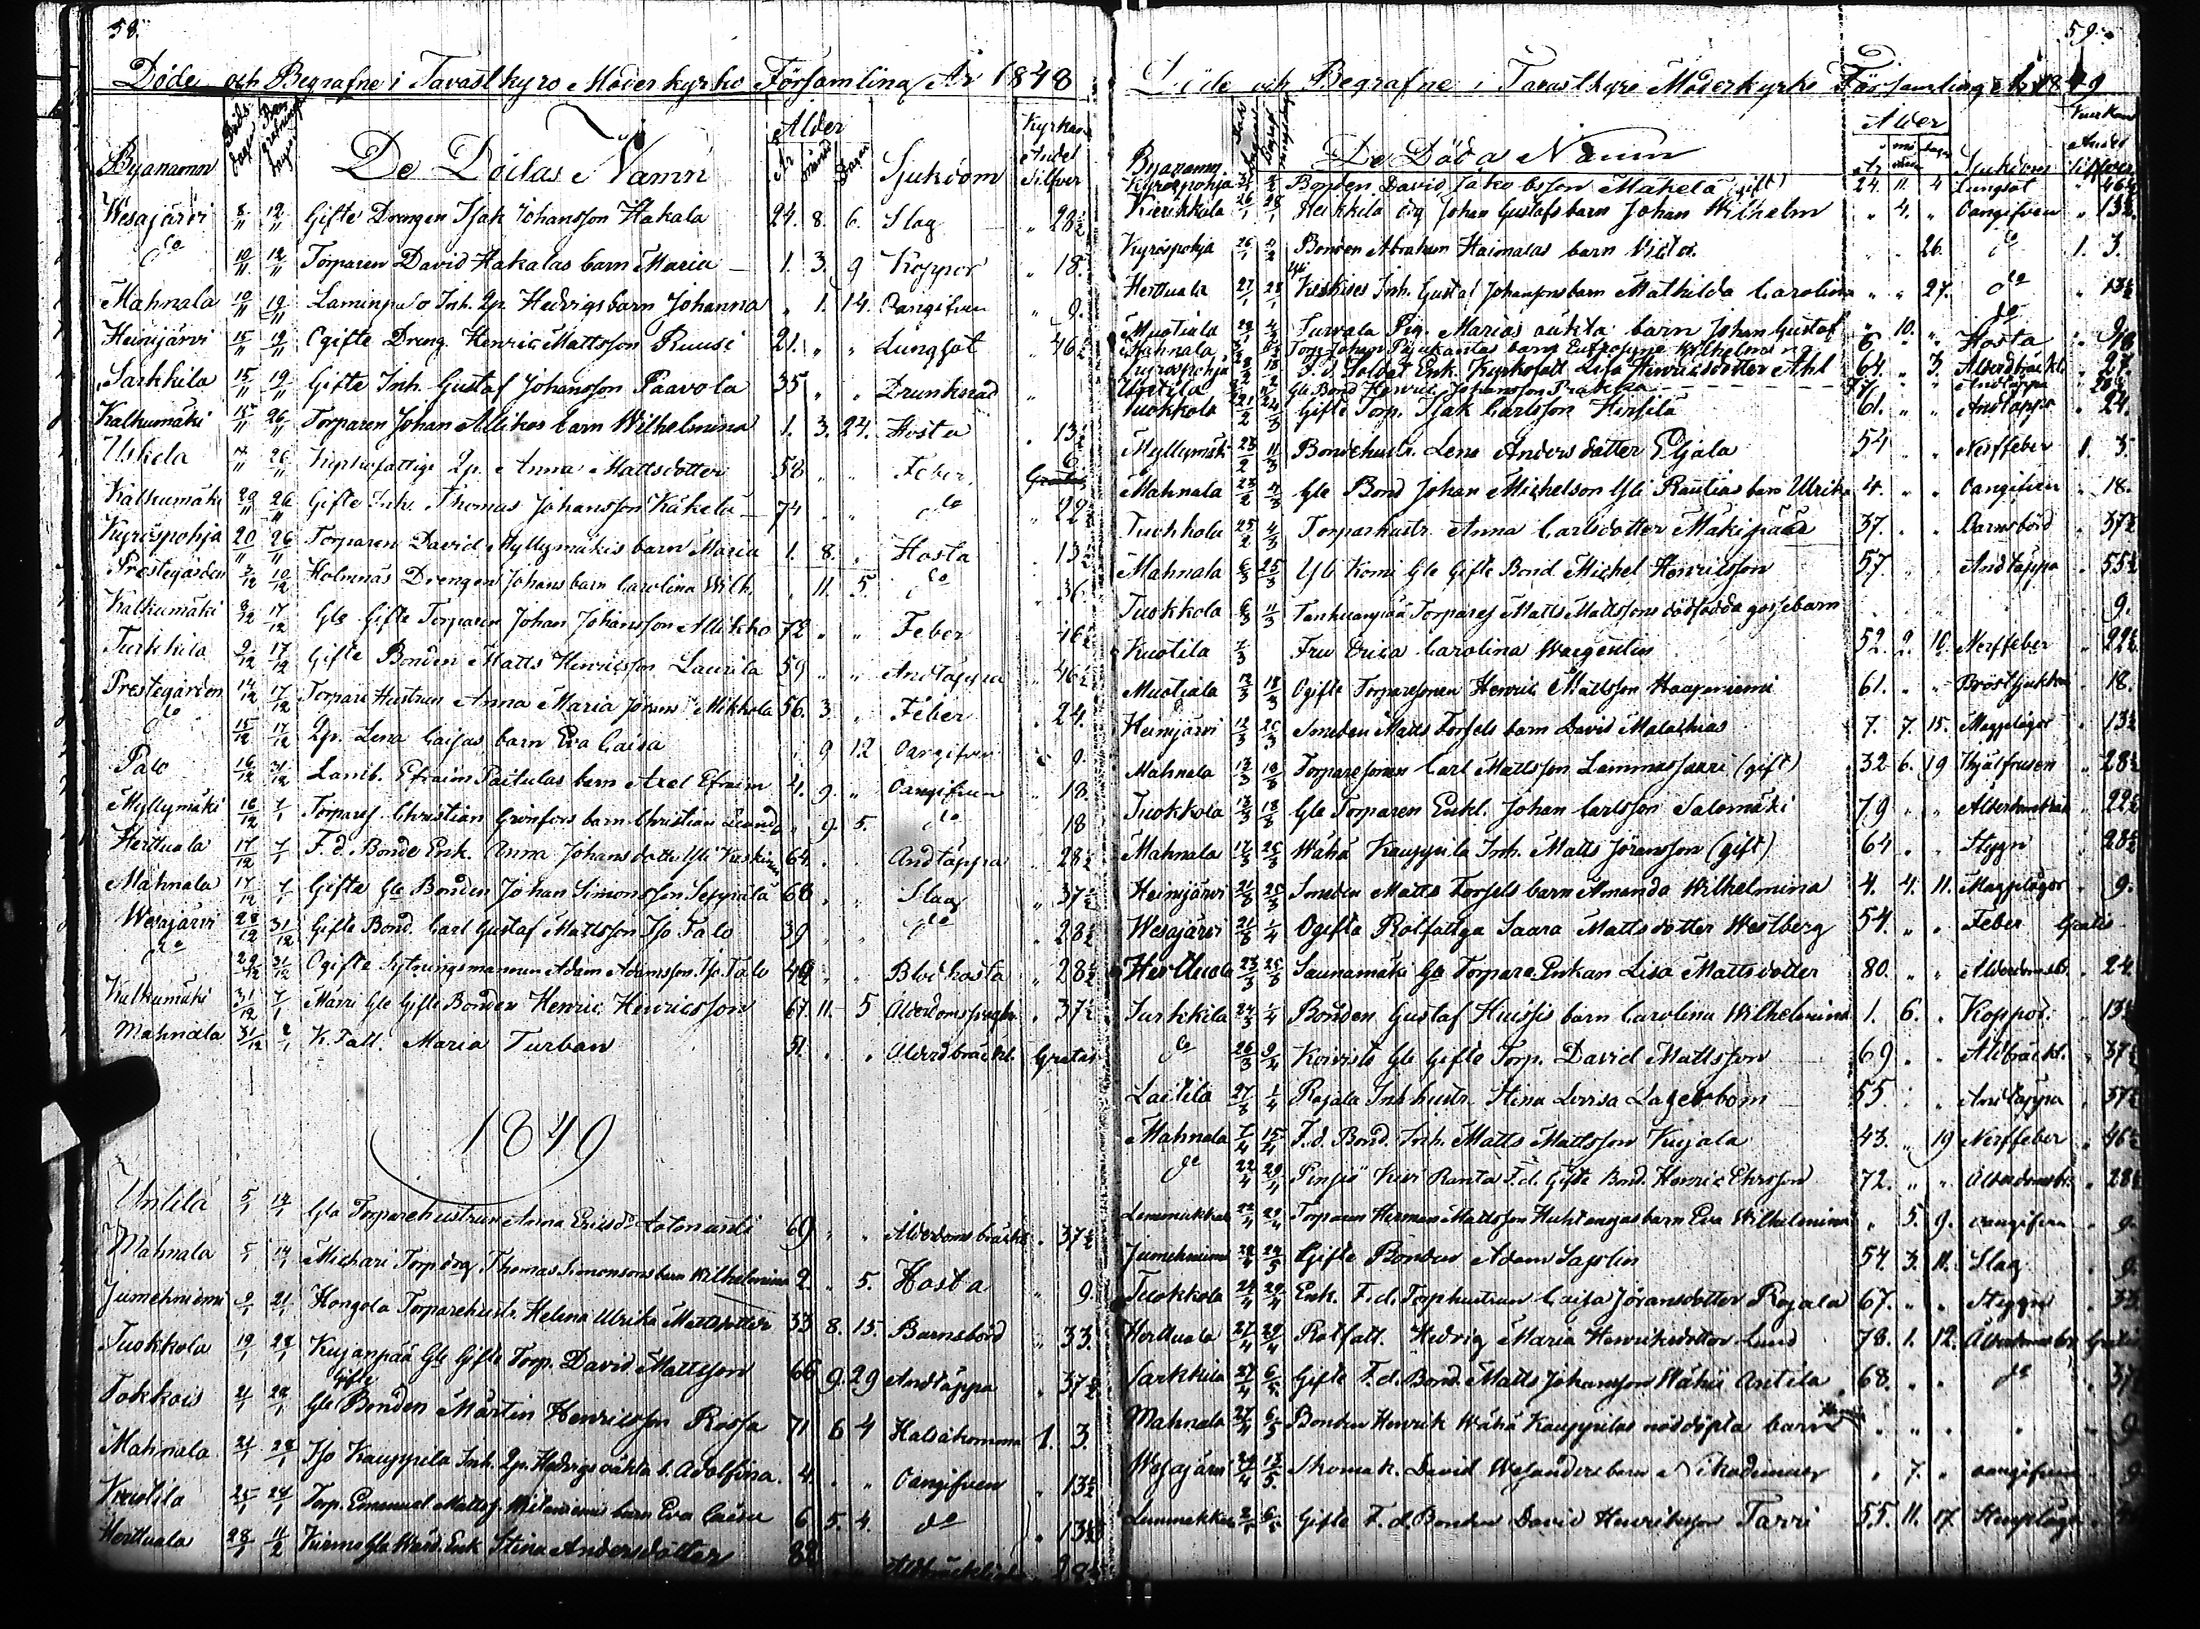 58.
Döde och Begrafne i Tavastkyro Moderkyrko Församling År 1848
Byanamn Döds dagen Begrafnings dagen De Dödas Namn Ålder År månad Dagar Sjukdom Kyrkans Andel Silfver
Wesajärvi 8/11 12/11 Gifte Drengen Isak Johansson Hakala 24. 8. 6. Slag " 28½
do 10/11 12/11 Torparen David Hakalas barn Maria 1. 3. 9 Koppor " 18.
Mahnala 10/11 19/11 Inh. Qp. Hedvigs barn Johanna " 1. 14. Oangifven " 9.
Heinijärvi 15/11 19/11 Ogifte Dreng Henric Mattsson Ruusi 21. " " Lungsot " 46½
Sarkkila 15/11 19/11 Gifte Inh. Gustaf Johansson Paavola 35 " " Drunknad "
Kalkumäki 15/11 26/11 Torparen Johan Allikos barn Wilhelmina 1. 3. 24. Hosta . 13½
Uskela 26/11 Kyrkofattige Qp. Anna Mattsdotter 58 " " Feber. 6
Kalkumäki 20/11 26/11 Gifte Inh. Thomas Johansson Käkelä 74 . " do " 22½
Kyröspohja 20/11 26/11 Torparen David Myllymäkis barn Maria 1. 8. " Hosta . 13½
Prestegården 3/12 10/12 Holmnäs Drengen Johans barn Carolina Wilh. . 11. 5. do " 36.
Kalkumäki 8/12 17/12 Gle Gifte Torparen Johan Johansson Allikko 72 " " Feber " 16½
Turkkila 9/12 17/12 Gifte Bonden Matts Henricsson Laurila 59 " " Andtäppa " 46½
Prestegården 14/12 17/12 Torpare Hustrun Anna Maria Mikkola 56. 3. " Feber . 24.
do 15/12 17/12 Qp. Lena Caisas barn Eva Caisa . 9 12 Oangifven 9.
Palo 16/12 31/12 Lamb. Efraim Paitulas barn Axel Efraim 4. 9. " Oangifven " 18.
Myllymäki 16/12 7/1 Torparef. Christian Grönfors barn Christian " 9. 5. do " 18
Herttuala 17/12 7/1 F. d. Bonde Enk. Anna Johansdotter Yli 64. . " Andtäppa " 28½
Mahnala 17/12 7/1 Gifte Gle Bonden Johan Simonsson Seppälä 68 . " Slag " 37½
Wesajärvi 28/12 31/12 Gifte Bond. Carl Gustaf Mattsson Iso Talo 39 " " do . 28½
do 29/12 31/12 Ogifte Sytningsmannen Adam Adamsson Iso Talo 49 " " Blodhosta " 28½
Kalkumäki 31/12 7/1 Märri Gle Gifte Bonden Henric Henricsson 67. 11. 5 . 37½
Mahnala 31/12 K. Fatt. Maria Turban 51 . " Ålderdbräckl. Gratis
1849
5/1 14/1 Gla Torparehustrun Anna Ericsdr 69 " " Ålderdoms bräckl. . 37½
Mahnala 5/1 14/1 Michari Torp drg Thomas Simonssons barn Wilhelmina 2 " 5. Hosta " 9.
Jumehniemi 9/1 21/1 Hongola Torparehustr. Helena Ulrika Mattsdotter 33 8. 15. Barnsbörd " 33.
Tuokkola 19/1 28/1 Kujanpää Gle Gifte Torp. David Mattsson 66 9. 29 Andtäppa . 37½
Tokkois 21/1 28/1 Gle Gifte Bonden Märtin Henricsson Rossa 71 6 4 Halsåkomma 1. 3.
Mahnala 21/1 28/1 Iso Kauppila Inh. Qp. Hedvigs oäkta b. Adolfina. 4. " . Oangifven " 13½
Kuotila 25/1 28/1 Torp. Emanuel Mattss. barn Eva Caisa 6 5. 4. do . 13½
Herttuala 28/1 11/2 Enk Stina Andersdotter 82 28½
59.
Döde och Begrafne i Tavastkyro Moderkyrko Församling År 1849
Byanamn De Döda Namn Ålder År månad dagar Sjukdom Kyrkans Andel Silfver
Kyröspohja Bonden David Jakobsson Mäkelä (gift) 24. 11. 4 Lungsot " 46½
Kierikkala 26/1 28/1 Heikkilä drg Johan Gustafs barn Johan Wilhelm " 4. " Oangifven " 13½.
Kyröspohja 26/1 4/2 Bonden Abraham Haimalas barn Victor . . 26. do 1. 3.
Herttuala 27/1 28/1 Yli Keskises Inh. Gustaf Johanssons barn Mathilda Carolina " " 27. do " 13½
Muotiala Turvala Pig. Marias oäkta barn Johan Gustaf " 10. " do " 9
Mahnala Torp Johan barn Eufrosyne Wilhelmina 6 " " Hosta " 18
Kyröspohja F. d. Soldat Enk. Kyrkofatt. Lisa Henricsdotter Ahl 64. " 3. Ålderdbräckl. 27.
Gle Bond Henric Johansson 77 " " Andtäppa
Tuokkola 22/2 Gifte Torp. Isak Carlsson Hirsilä 61. " " Andtäppa " 24.
Myllymäki 23/2 11/3 Bondehustr. Lena Andersdotter Eljala 54 " " Nerffeber 1. 3.
Mahnala 23/2 4/3 Gle Bond Johan Michelson Yli Rautias barn Ulrika 4. " " Oangifven " 18.
Tuokkola 25/2 4/3 Torparhustr. Anna Carlsdotter Mäkipää 37. " " Barnsbörd " 37½
Mahnala 6/3 25/3 Yli Komi Gle Gifte Bond. Michel Henricsson 57. " " Andtäppa " 55½
Tuokkola 6/3 11/3 Tanhuanpää Torparef Matts Mattssons dödfödda gossebarn 9.
Kuotila 7/3 Fru Erica Carolina Wargentin 52. 2. 10. Nerffeber " 22½
Muotiala 12/3 18/3 Ogifte Torparesonen Henric Mattsson Haapaniemi 61. " " Bröstsjukdom " 18.
Heinijärvi 12/3 25/3 Smeden Matts Forsels barn David Malachias 7. 7. 15. Magplågor . 13½
Mahnala 12/3 18/3 Torparesonen Carl Mattsson Lammassaari (gift) 32 6. 19 Ihjälfrusen " 28½
Tuokkola 13/3 18/3 Gle Torparen Enkl. Johan Carlsson Salomäki 79 " " Ålderdomsbräckl " 22½
Mahnala 17/3 25/3 Wähä Kauppila Inh. Matts Jöransson (gift) 64 " " Stygn " 28½
Heinijärvi 21/3 25/3 Smeden Matts Forsels barn Amanda Wilhelmina 4. 4. 11. Magplågor " 9.
Wesajärvi 21/3 1/4 Ogifta Rotfattga Saara Mattsdotter Westberg 54. " " Feber Gratis
Herttuala 23/3 25/3 Saunamäki Gla Torpare Enkan Lisa Mattsdotter 80. " " Ålderdomsb. " 24
Turkkila 24/3 1/4 Bonden Gustaf Huissis barn Carolina Wilhelmina 1. 6. " Koppor. " 13½
do 26/3 9/4 Koivisto Gle Gifte Torp. David Mattsson 69 " " Åldbräckl. " 37½
Laitila 27/3 1/4 Rajala Inh hustr. Stina Lovisa Lagerbom 55 " " Andtäppa . 37½
Mahnala 7/4 15/4 F. d. Bond. Inh. Matts Mattsson Kujala 43. " 19 Nerffeber " 46½
do 22/4 29/4 Pinsiö Kivi Ranta F. d. Gifte Bond. Henric Ehrsson 72. " " Ålderdomsb. " 28½
22/4 29/4 Torparen Herman Mattsson barn Eva Wilhelmina " 5. 9. oangifven " 9.
Jumehniemi Gifte Bonden Adam 54 3. 11. Slag . 9.
Tuokkola 24/4 29/4 Enk. F. d. Torphustrun Caisa Jöransdotter Rajala 67. " " Stygn " 33.
Herttuala 27/4 29/4 Rotfatt. Hedvig Maria Henriksdotter Lund 78. 1. 12. Ålderdomsbr. Gratis
Sarkkila 27/4 6/5 Gifte F. d. Bond. Matts Johansson Wähä Antila 68. " " do " 37½
Mahnala 27/4 6/5 Bonden Henrik Wähä Kauppilas nöddöpta barn " " " " 9
Wesajärvi 29/4 13/5. Skomak. David Wesanders barn Nikodemus " 7. " oangifven " 9
Gifte F. d. Bonden David Henriksson Tarri 55. 11. 17.